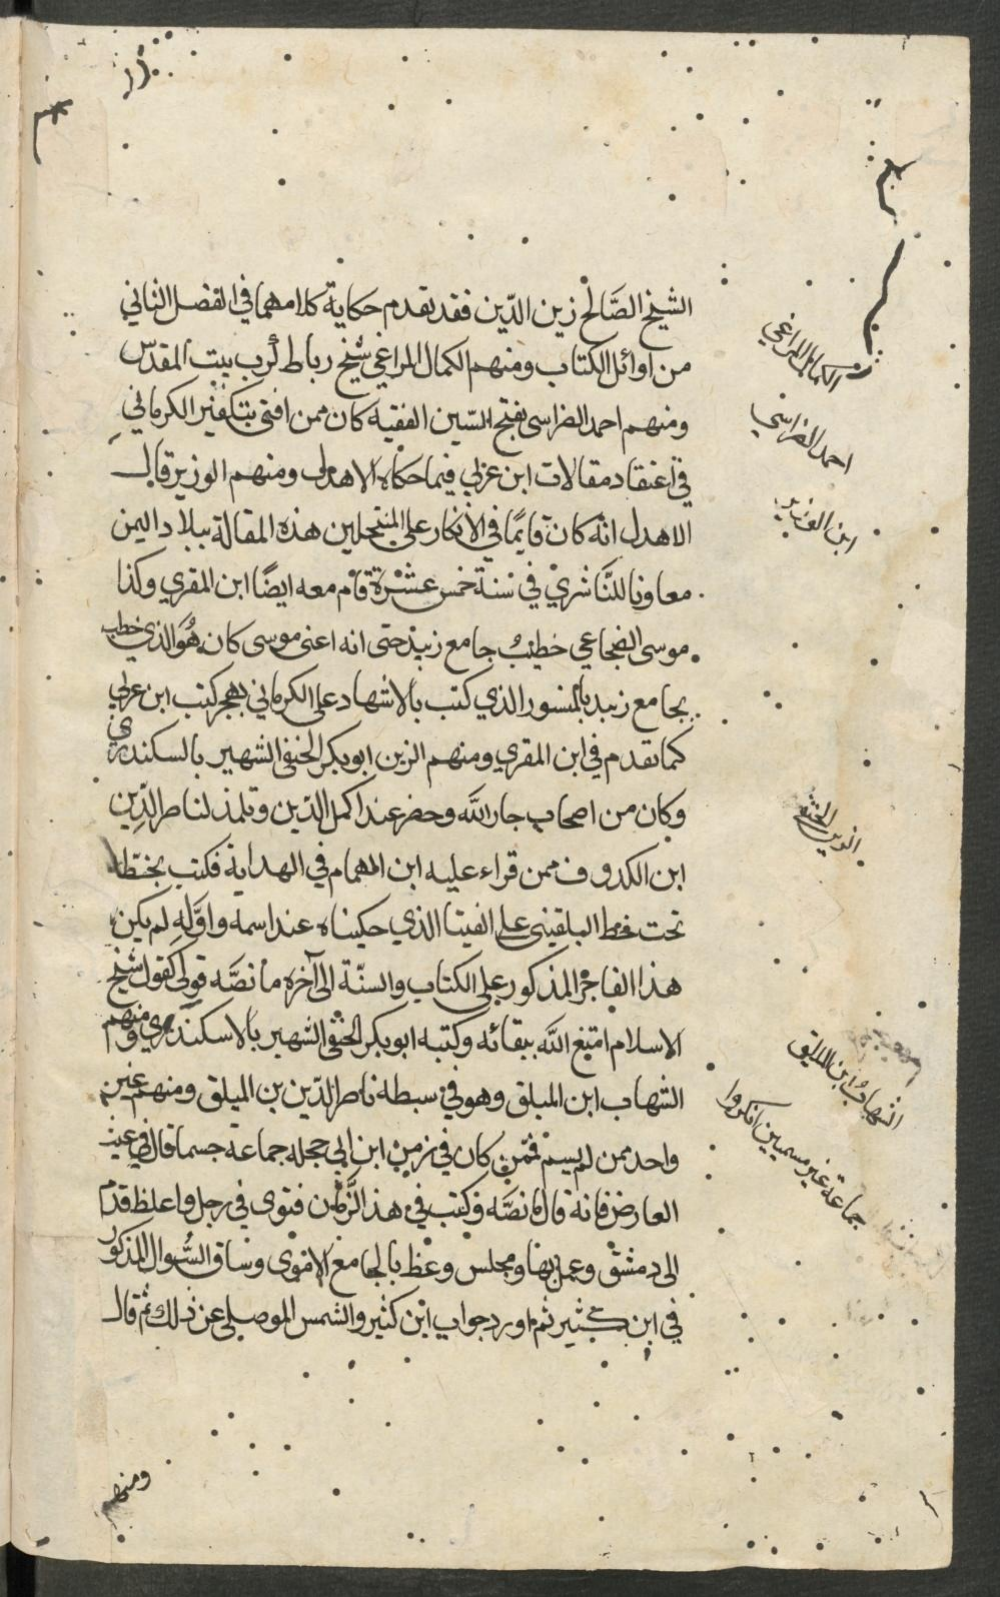 الشيخ الصَّالح زين الدّين فقد تقدم حكاية كلامهما في الفصل الثاني
من اوائل الكتاب ومنهم الكمال المراغي شيخ رباط بيت المقدس
ومنهم احمد الضراسى بفتح السّين الفقيه كان ممن افتى بتكفير الكرماني
في اعتقاد مقالات ابن عربي فيما حكاه الاهدل ومنهم الوزير قال
الاهدل انه كان قايمًا في الانكار على المنتحلين هذه المقالة ببلاد اليمن
معاونا للنَّاشري في سنة خمس عشرة قام معه ايضًا ابن المقري وكذا
موسى الضجاعي خطيب جامع زبيد حتى انه اعنى موسى كان هُوَ الذي خطب
بجامع زبيد بالمنسور الذي كتب بالاشهاد على الكرماني بهجر كتب ابن عربي
كما تقدم في ابن المقري ومنهم الزين ابو بكر الحنفي الشهير بالسكندري
وكان من اصحاب جار الله وحضر عند اكمل الدّين وتلمذ لناصر الدِّين
ابن الكدوف ممن قراء عليه ابن الهمام في الهداية فكتب بخطه
تحت خط البلقينى على الفيتا الذي حكيناه عند اسمه واوّله لم يكن
هذا الفاجر المذكور على الكتاب والسنّة الى آخره ما نصّه قولى كقول شيخ
الاسلام امتع الله ببقائه وكتبه ابو بكر الحنفي الشهير بالاسكندري ومنهم
الشهاب ابن الميلق وهو في سبطه ناصر الدّين بن الميلق ومنهم غير
واحد ممن لم يسم فممن كان في زمن ابن ابي حجلة جماعة حسما قال في غيث
العارض فانه قال ما نصّه وكتب في هذا الزّمان فتوى في رجل واعظ قدم
الى دمشق وعمل بها مجلس وعظ بالجامع الاموي وساق السُّوال المذكور
في ابن كثير ثم اورد جواب ابن كثير والشمس الموصلي عن ذلك ثم قال
ومنهم
الكمال المراغي
احمد الضراسي
ابن الوزير
الزين الحنفي
الشهاب ابن الميلق
جماعة غير مسميين انكروا